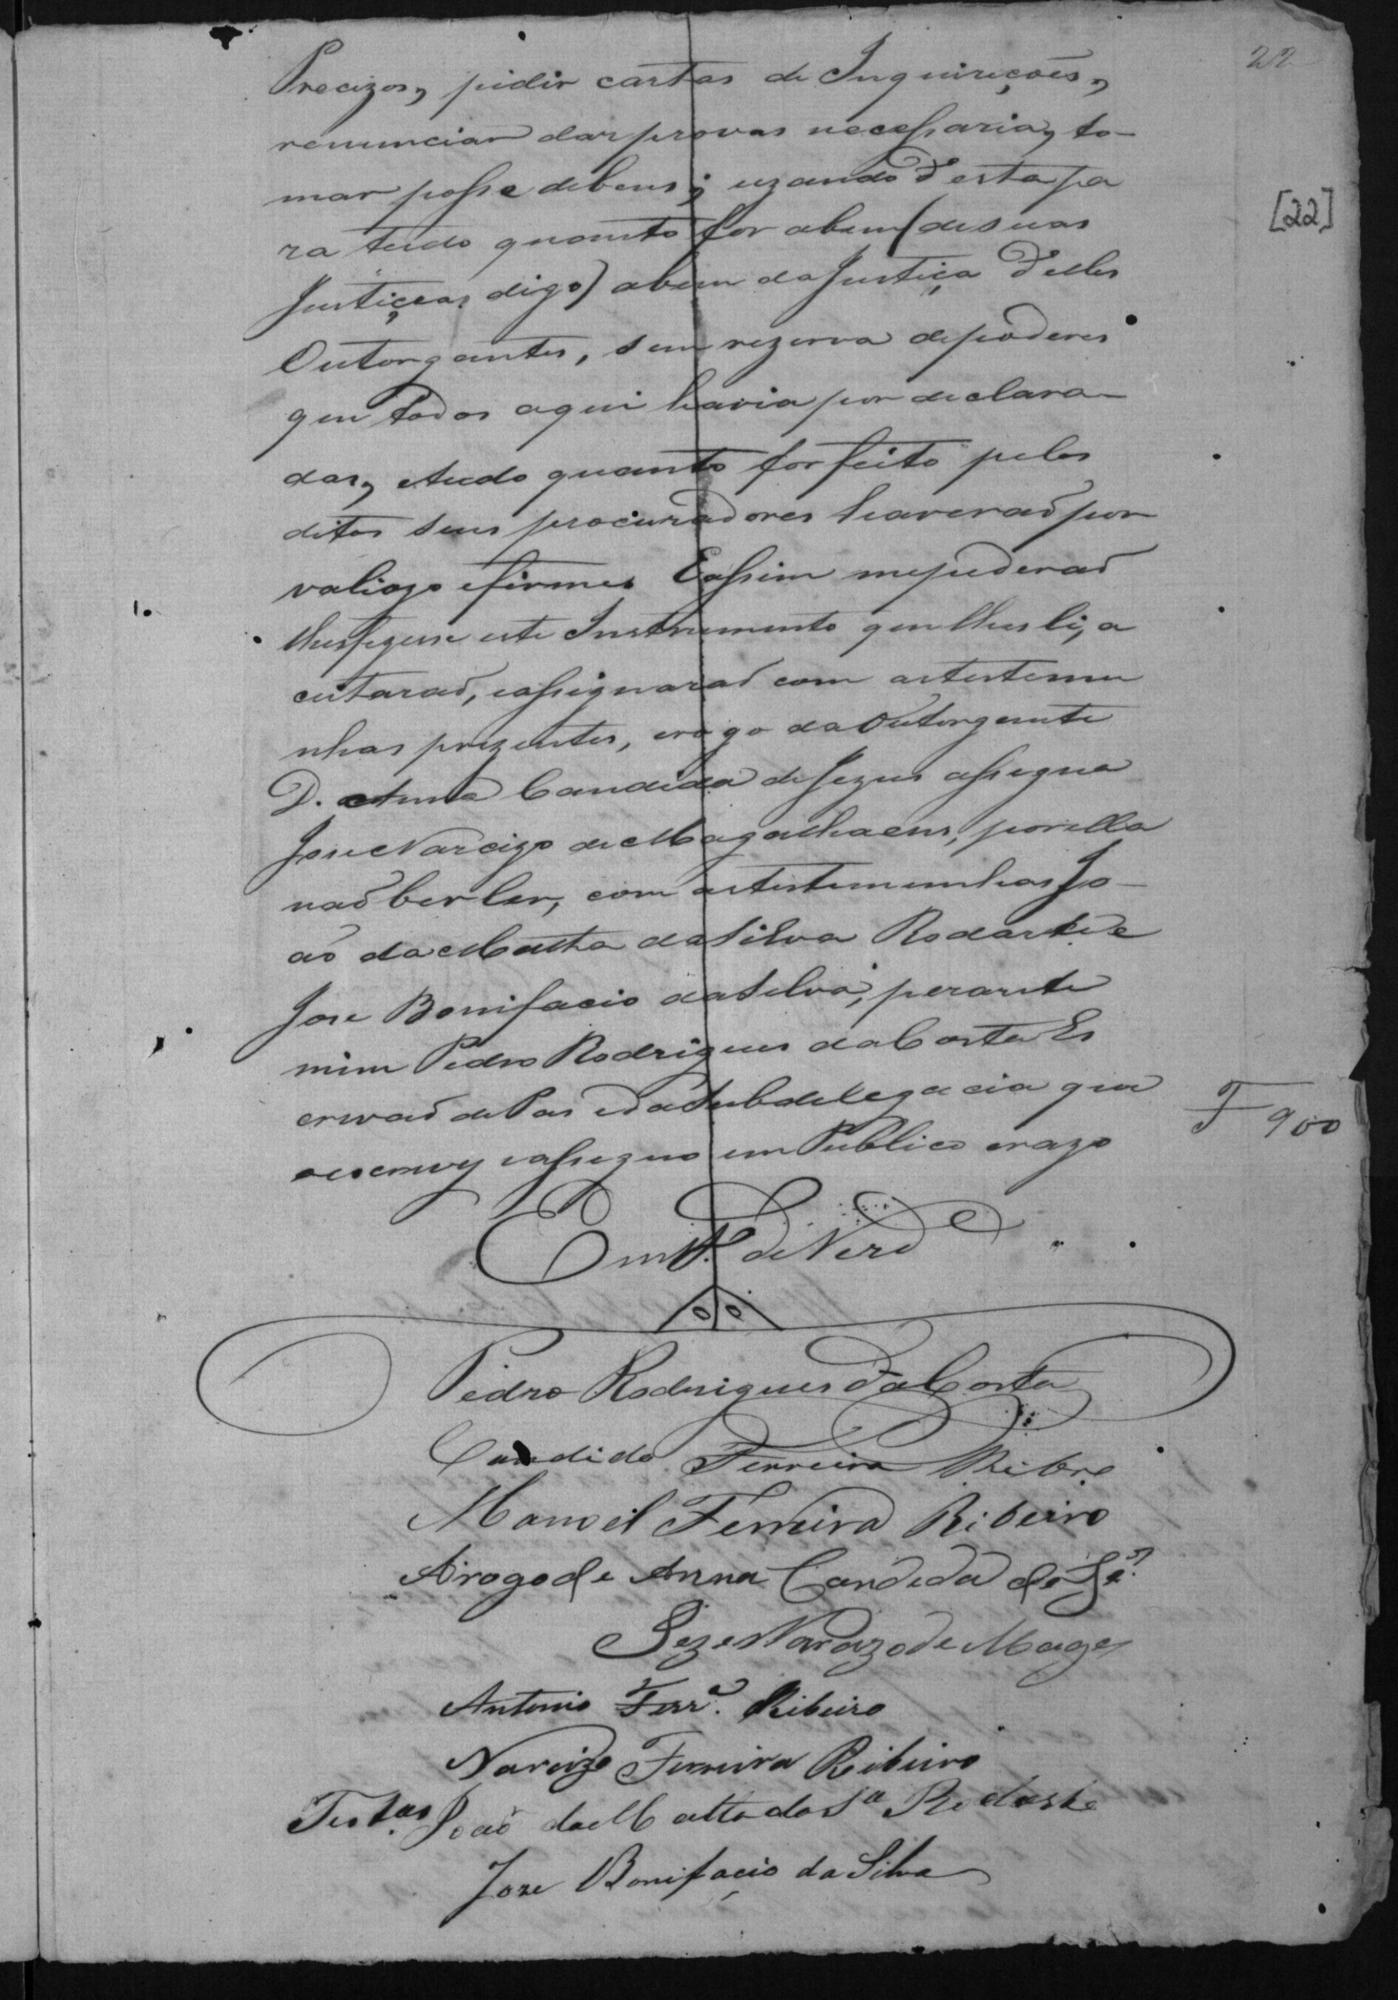 22
[22]
Precizos, pidir cartas de Inquireçoẽs,
renunciar dar provas necessaria, to-
mar posse debens; uzando d'esta pa
ra tudo quanto for abem (de suas
Justiças digo) abem da Justiça d'elles
Outorgantes, sem rezerva de poderes
que todos aqui havia por declara-
dos, etudo quanto for feito pelos
ditos seus procuradores haveraõ por
valiozo efirme. Eassim mepediraõ
lhesfizesse este Instrumento que lhes li, a
ceitaraõ, eassignaraõ com astestemu
nhas prezentes, erogo da Outorgante
D. Anna Candida de Jezus assigna
Jose Narcizo de Magalhaens, por ella
naõ ler, com astestemunhas Jo-
aõ da Matta da Silva Rodarte e
Jose Bonifacio da Silva, perante
mim Pedro Rodrigues da Costa Es
crivaõ de Pas eda Subdelegacia que
oescrevy eassigno em Publico erazo
F 900
Em t.º de Verd.e
Pedro Rodrigues da Costa
Candido Ferreira Ribro
Manoel Ferreira Ribeiro
Arogo de Anna Candida de Je.s
Joze Narcizo de Mages
Antonio Ferr.a Ribeiro
Narcizo Ferreira Ribeiro
Test.as Joaõ da Matta da S.a Rodarte
Joze Bonifaçio da Silva